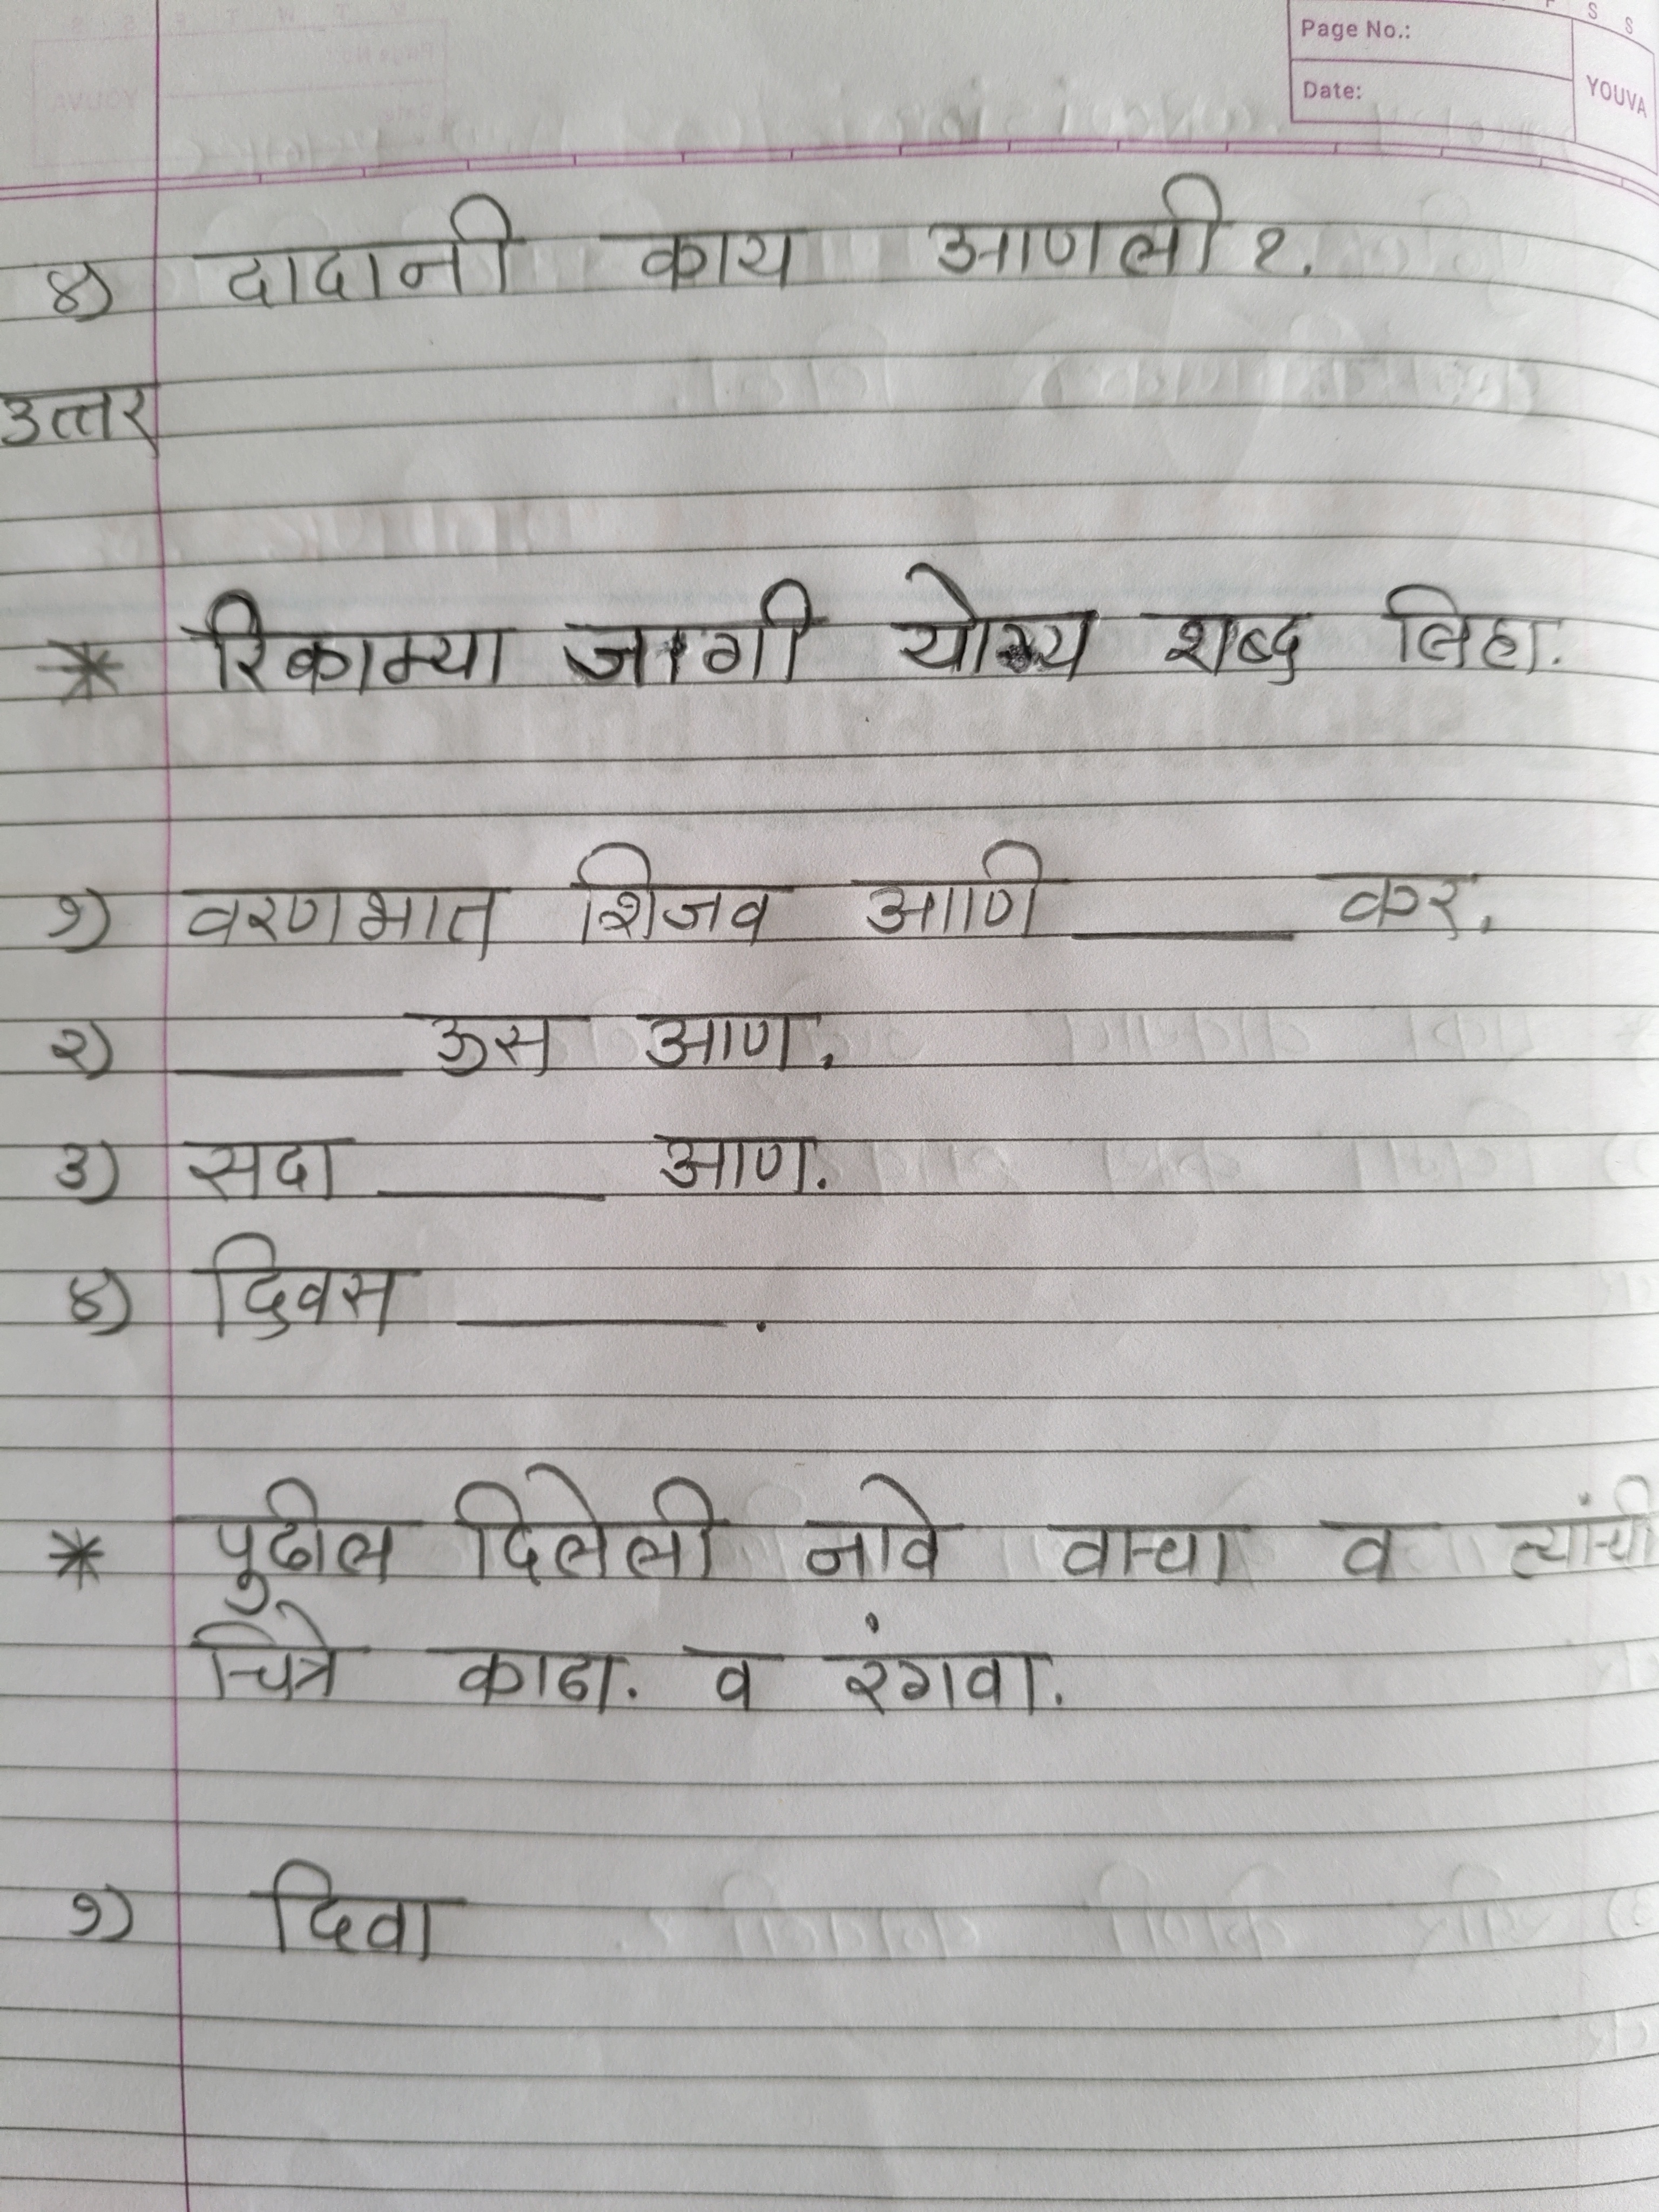 Page No.:
Date:
YOUVA
४) दादानी काय आणली ?.
उत्तर
* रिकाम्या जागी योग्य शब्द लिहा.
१) वरणभात शिजव आणि ______ कर.
२) ______ ऊस आण.
३) सदा ______ आण.
४) दिवस ______ .
* पुढील दिलेली नावे वाचा व त्यांची
चित्रे काढा. व रंगवा.
१) दिवा